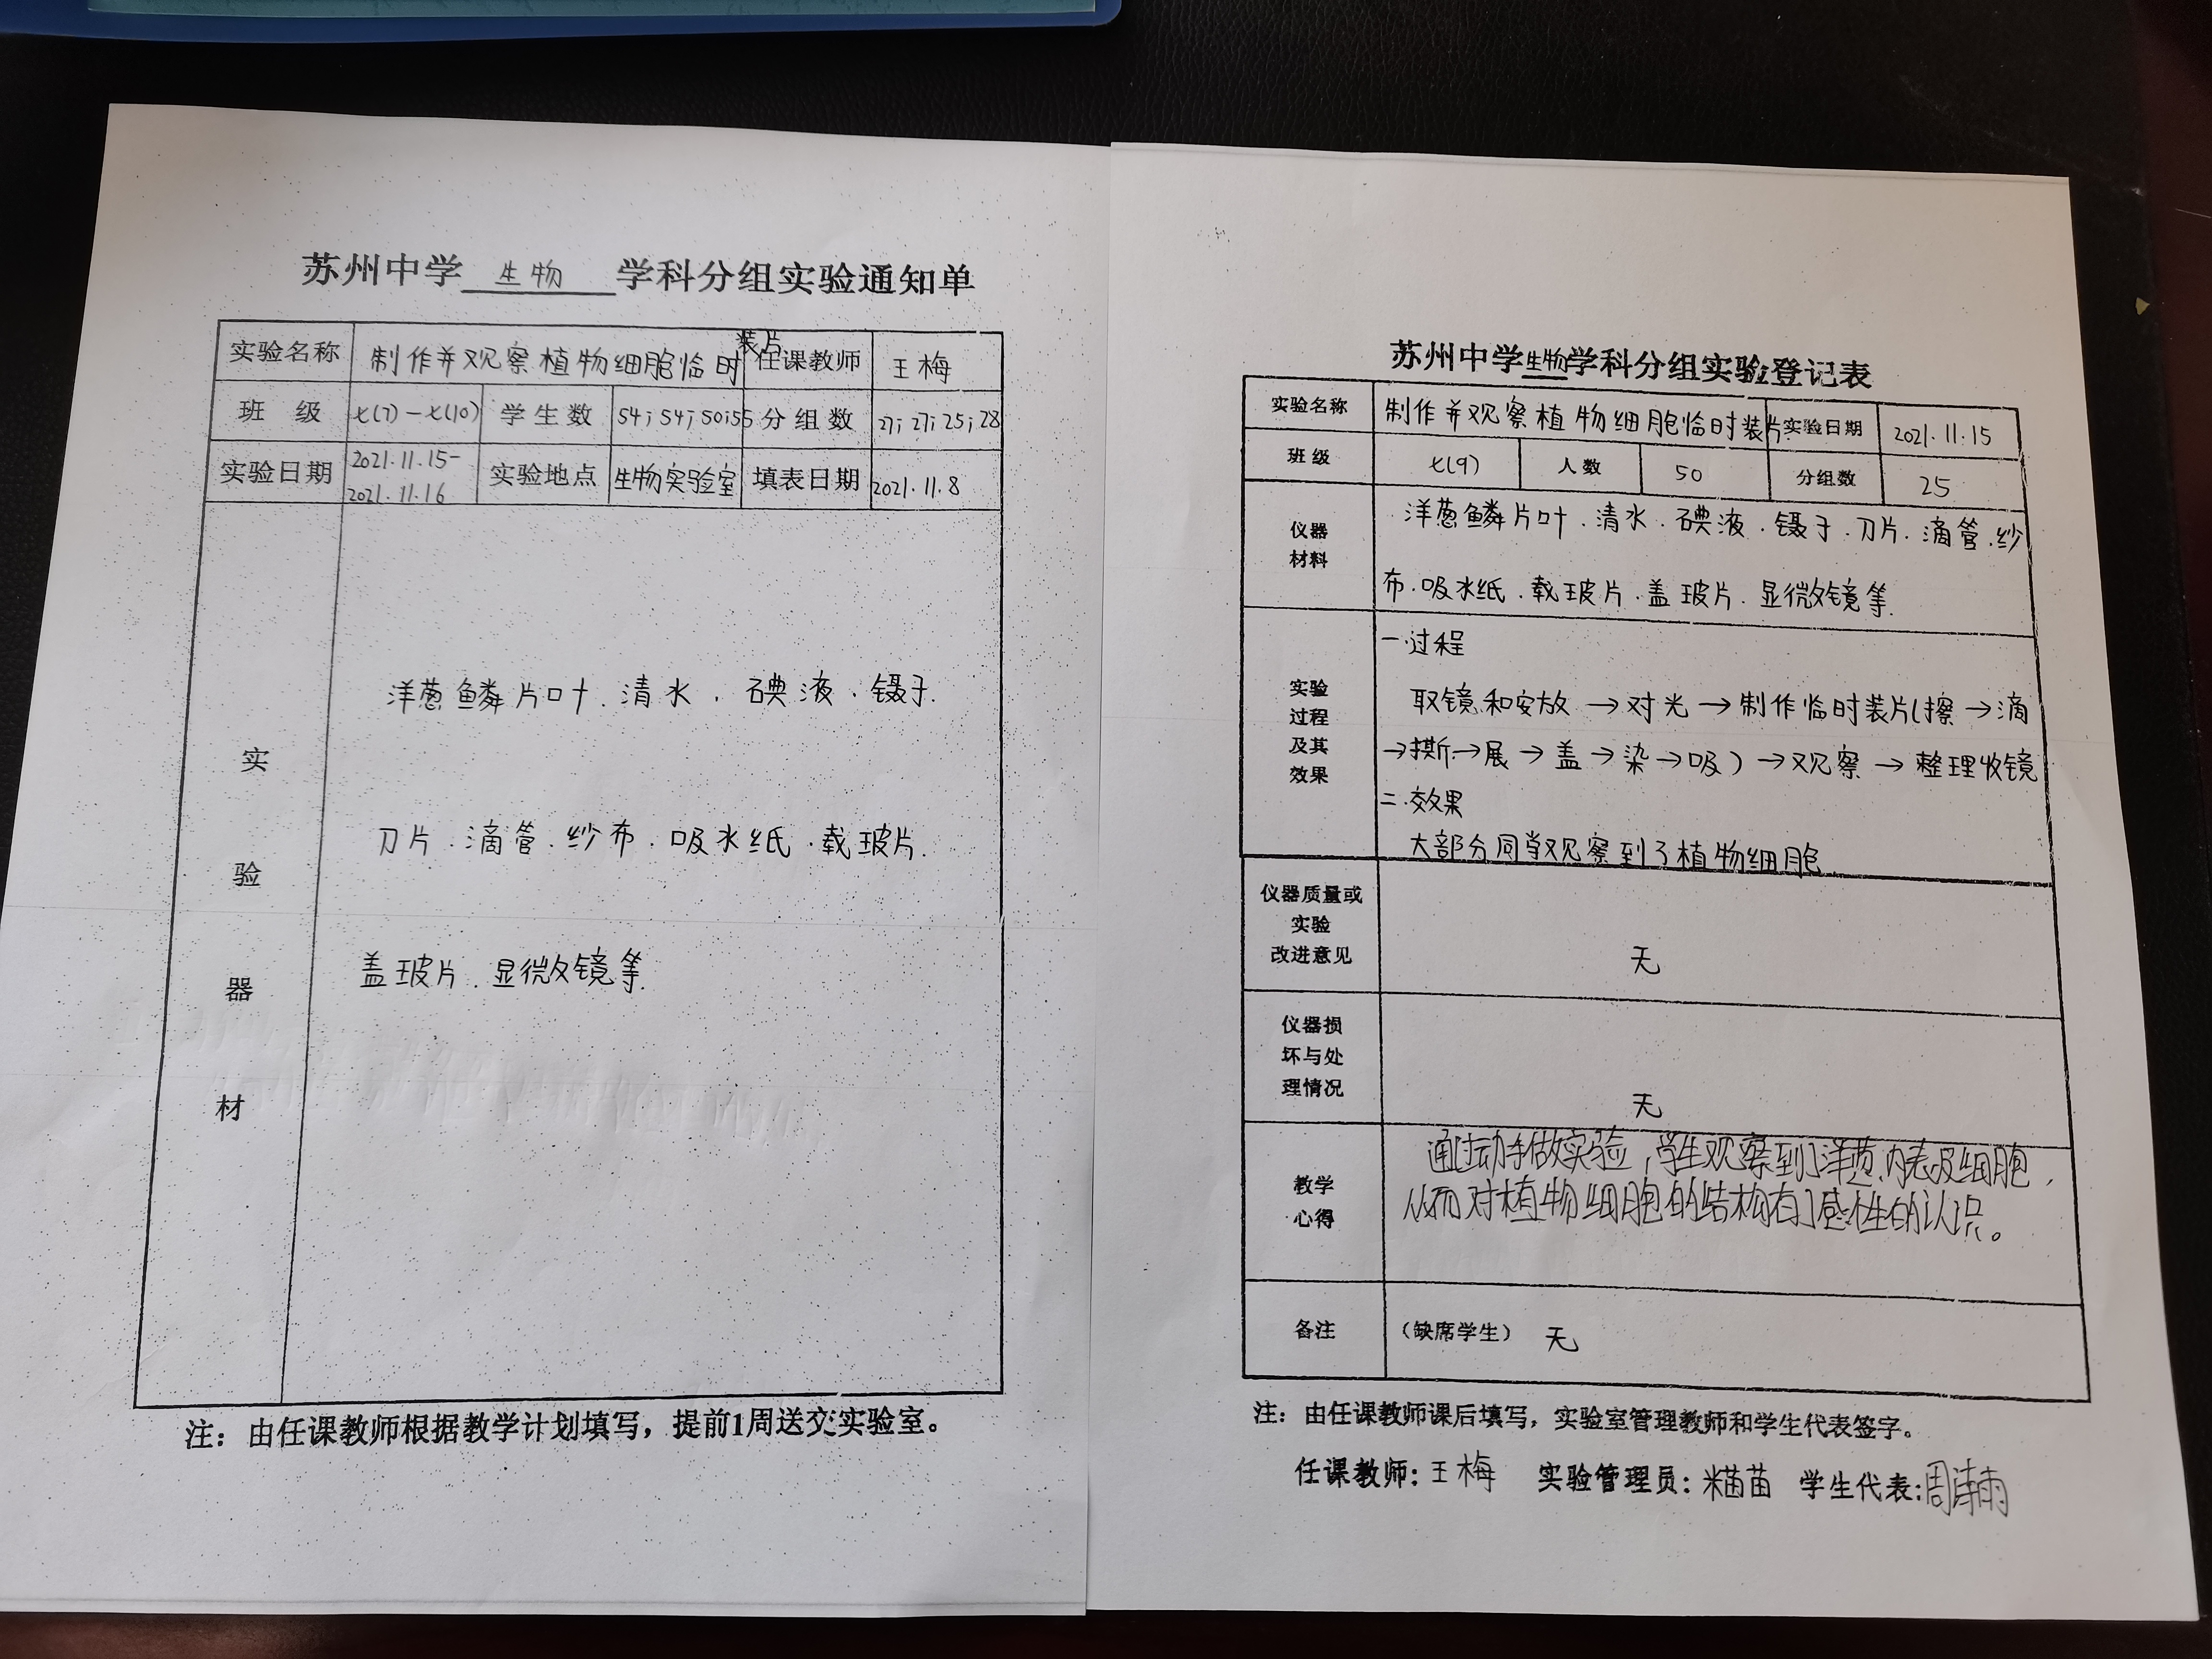 苏州中学 生物 学科分组实验通知单
实验名称 制作并观察植物细胞临时装片 任课教师 王梅
班级 七(7)-七(10) 学生数 54;54;50;55 分组数 27;27;25;28
实验日期 2021.11.15-2021.11.16 实验地点 生物实验室 填表日期 2021.11.8
实验器材
洋葱鳞片叶.清水.碘液.镊子.
刀片.滴管.纱布.吸水纸.载玻片.
盖玻片.显微镜等.
注：由任课教师根据教学计划填写，提前1周送交实验室。
苏州中学生物学科分组实验登记表
实验名称 制作并观察植物细胞临时装片 实验日期 2021.11.15
班级 七(9) 人数 50 分组数 25
仪器材料
洋葱鳞片叶.清水.碘液.镊子.刀片.滴管.纱
布.吸水纸.载玻片.盖玻片.显微镜等.
实验过程及其效果
一.过程
取镜和安放→对光→制作临时装片(擦→滴
→撕→展→盖→染→吸)→观察→整理收镜
二.效果
大部分同学观察到了植物细胞.
仪器质量或实验改进意见 无
仪器损坏与处理情况 无
教学心得
通过动手做实验，学生观察到了洋葱内表皮细胞，
从而对植物细胞的结构有了感性的认识。
备注 (缺席学生) 无
注：由任课教师课后填写，实验室管理教师和学生代表签字。
任课教师：王梅 实验管理员： 学生代表：